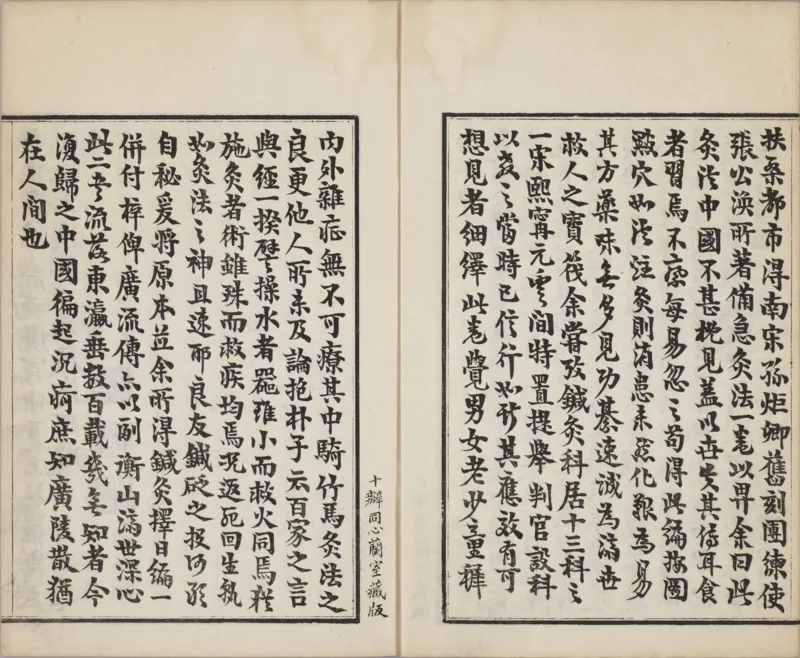 扶桑都市得南宋孫炬卿舊刻團練使
張公渙所著備急灸法一卷以畀余曰此
灸法中國不甚概見蓋以世失其傳耳食
者習焉不察每易忽之苟得此編按圖
點穴如法注灸則消患未然化艱為易
其方藥味無多見功綦速誠為濟世
救人之寶筏余嘗攷鍼灸科居十三科之
一宋熙寧元豐間特置提舉判官設科
以教之當時已信行如斯其應效有可
想見者細繹此卷覺男女老少童穉
內外雜症無不可療其中騎竹馬灸法之
良更他人所未及論抱朴子云百家之言
與經一揆譬操水者器雖小而救火同焉猶
施灸者術雖殊而救疾均焉況返死回生孰
如灸法之神且速耶良友鍼砭之投何敢
自秘爰將原本並余所得鍼灸擇日編一
併付梓俾廣流傳亦以副衡山濟世深心
此二書流落東瀛垂數百載幾無知者今
復歸之中國徧起沉疴庶知廣陵散猶
在人間也
十瓣同心蘭室藏版